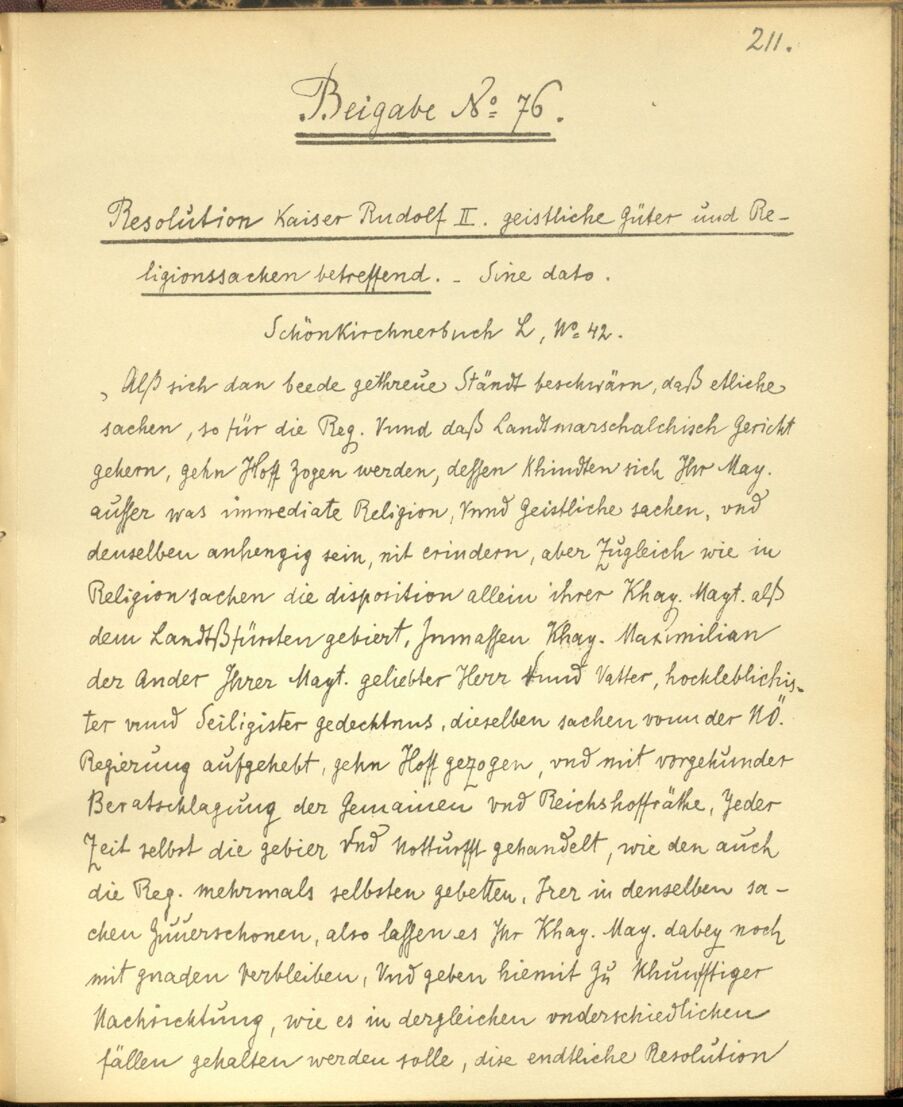 211.
Beigabe No. 76.
Resolution Kaiser Rudolf II. geistliche Güter und Re-
ligionssachen betreffend. - Sine dato.
Schönkirchnerbuch L, No. 42.
„Alß sich dan beede gethreue Ständt beschwärn, daß etliche
sachen, so für die Reg. Vnnd daß Landtmarschalchisch Gericht
gehern, gehn Hoff zogen werden, dessen khindten sich Ihr May.
ausser was immediate Religion, Vnnd Geistliche sachen, vnd
denselben anhengig sein, nit erindern, aber Zugleich wie in
Religionsachen die disposition allein ihrer Khay. Mayt. alß
dem Landtßfürsten gebiert, Inmassen Khay. Maximilian
der Ander Ihrer Mayt. geliebter Herr vnnd Vatter, hochleblichis-
ter vnnd Seiligister gedechtnus, dieselben sachen vonn der NÖ.
Regierung aufgehebt, gehn Hoff gezogen, vnd mit vorgehunder
Beratschlagung der Gemainen vnd Reichshoffräthe, Jeder
Zeit selbst die gebier Vnd Notturfft gehandelt, wie den auch
die Reg. mehrmals selbsten gebetten, Irer in denselben sa-
chen Zuuerschonen, also lassen es Ihr Khay. May. dabey noch
mit gnaden Verbleiben, Vnd geben hiemit Zu Khunfftiger
Nachrichtung, wie es in dergleichen vnderschiedlichen
fällen gehalten werden solle, dise endtliche Resolution